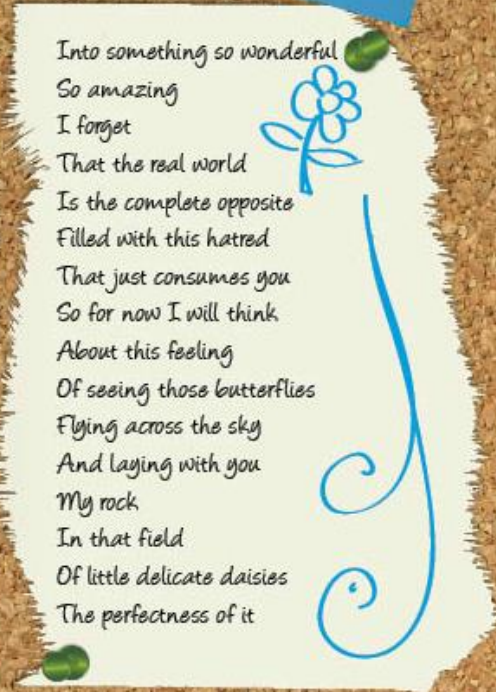 Into something so wonderful
So amazing
I forget
That the real world
Is the complete opposite
Filled with this hatred
That just consumes you
So for now I will think
About this feeling
Of seeing those butterflies
Flying across the sky
And laying with you
My rock
In that field
Of little delicate daisies
The perfectness of it